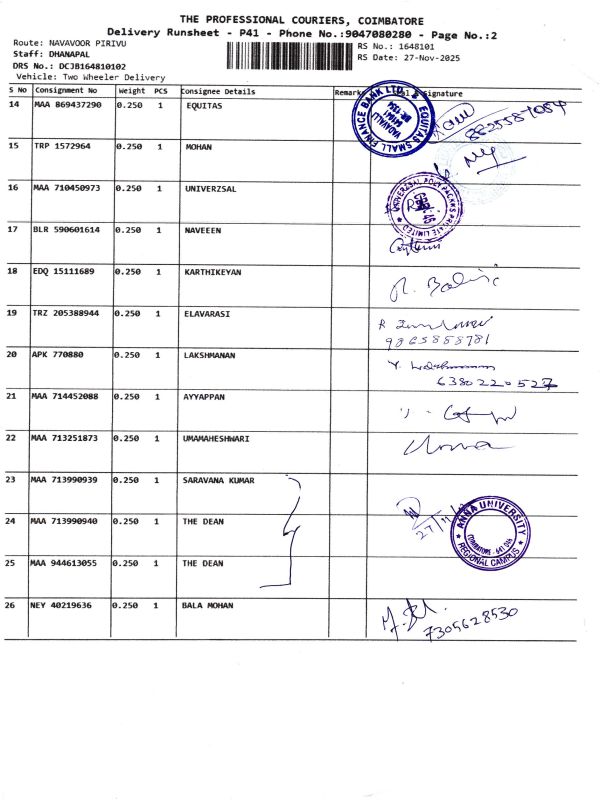 THE PROFESSIONAL COURIERS, COIMBATORE
Delivery Runsheet - P41 - Phone No.:9047080280 - Page No.:2
Route: NAVAVOOR PIRIVU
RS No.: 1648101
Staff: DHANAPAL
RS Date: 27-Nov-2025
DRS No.: DCJB164810102
Vehicle: Two Wheeler Delivery
S No Consignment No Weight PCS Consignee Details Remark Seal & Signature
14 MAA 869437290 0.250 1 EQUITAS
EQUITAS SMALL FINANCE BANK LTD.
VADAVALLI
BR.1354
15 TRP 1572964 0.250 1 MOHAN
16 MAA 710450973 0.250 1 UNIVERZSAL
UNIVERZSAL POLY PACKS PRIVATE LIMITED
17 BLR 590601614 0.250 1 NAVEEEN
18 EDQ 15111689 0.250 1 KARTHIKEYAN
19 TRZ 205388944 0.250 1 ELAVARASI
9865858781
20 APK 770880 0.250 1 LAKSHMANAN
6380220527
21 MAA 714452088 0.250 1 AYYAPPAN
22 MAA 713251873 0.250 1 UMAMAHESHWARI
Uma
23 MAA 713990939 0.250 1 SARAVANA KUMAR
24 MAA 713990940 0.250 1 THE DEAN
27/11/
ANNA UNIVERSITY
COIMBATORE - 641 046
REGIONAL CAMPUS
25 MAA 944613055 0.250 1 THE DEAN
26 NEY 40219636 0.250 1 BALA MOHAN
7305628530